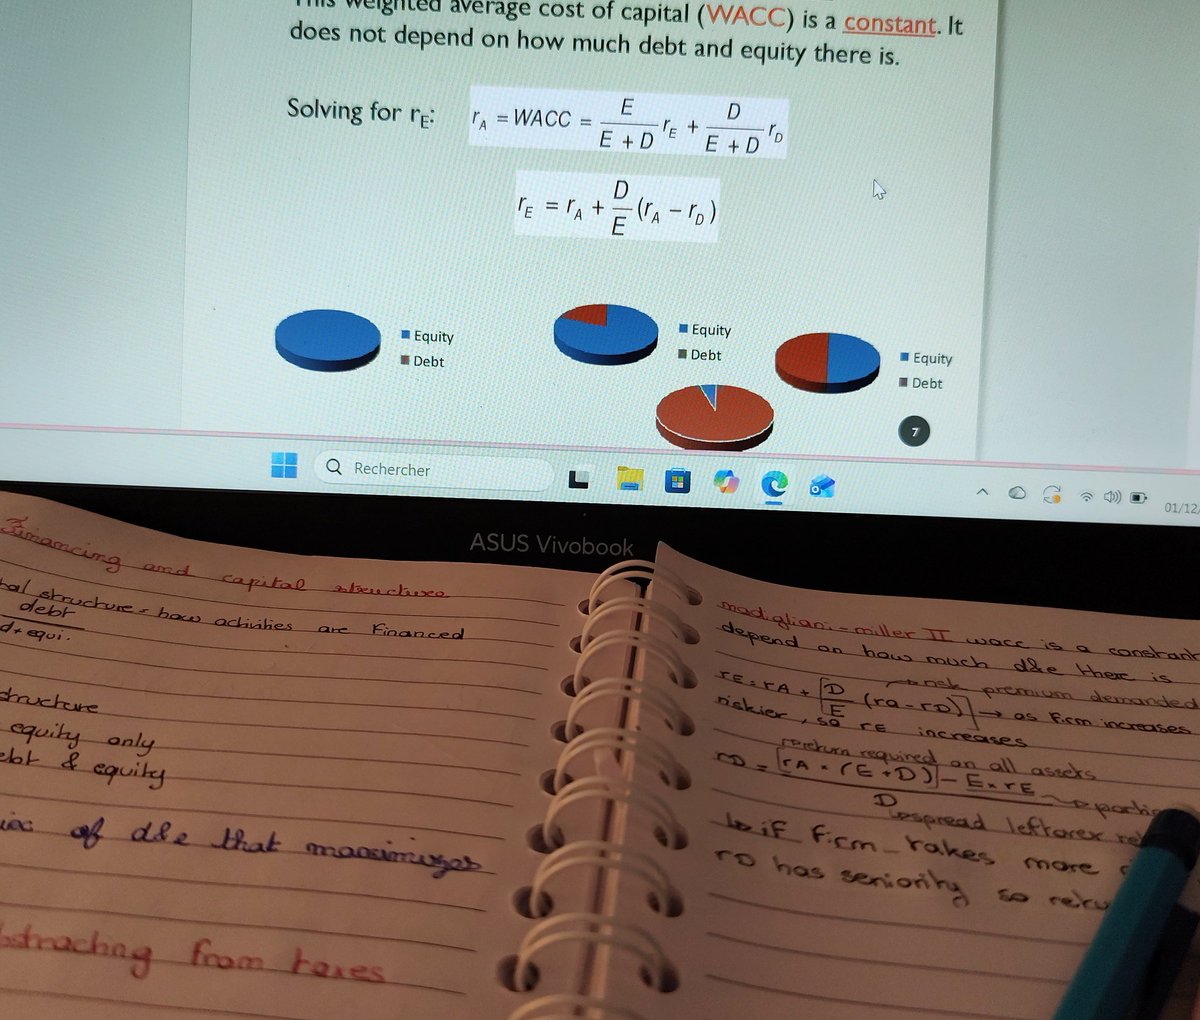 This weighted average cost of capital (WACC) is a constant. It
does not depend on how much debt and equity there is.
Solving for rE:
rA = WACC = E/(E + D) rE + D/(E + D) rD
rE = rA + D/E (rA − rD)
Equity
Debt
Equity
Debt
Equity
Debt
7
Rechercher
01/12/
ASUS Vivobook
Financing and capital structure
structure = how activities are financed
debt
d + equi.
structure
equity only
debt & equity
of d&e that
from taxes
modigliani-miller II wacc is a constant
depend on how much d&e there is
rE = rA + [D/E (ra - rD)] → risk premium demanded
→ as firm increases
riskier, so rE increases
return required on all assets
rD = [rA × (E + D)] - E × rE
D
spread leftover
if firm takes more
rD has seniority so